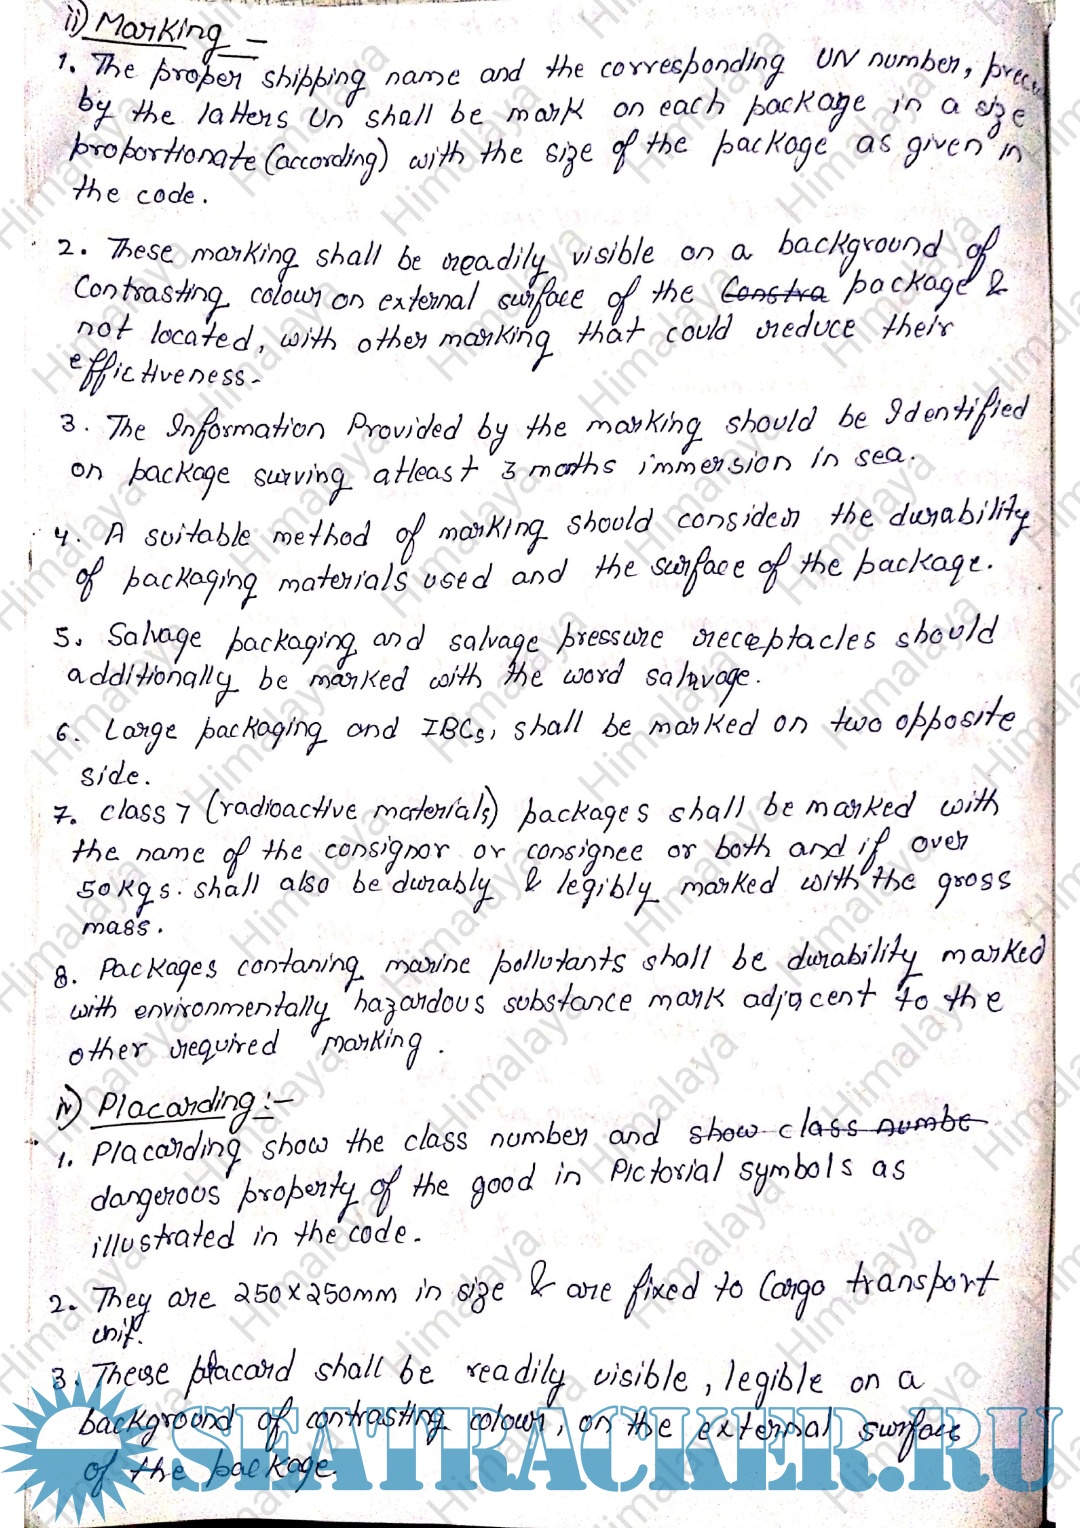 ii) Marking -
1. The proper shipping name and the corresponding UN number,
by the latters Un shall be mark on each package in a size
proportionate (according) with the size of the package as given in
the code.
2. These marking shall be readily visible on a background of
Contrasting colour on external surface of the Constra package &
not located, with other marking that could reduce their
effictiveness-
3. The Information Provided by the marking should be Identified
on package surving atleast 3 months immersion in sea.
4. A suitable method of marking should consider the durability
of packaging materials used and the surface of the package.
5. Salvage packaging and salvage pressure receptacles should
additionally be marked with the word salvage.
6. Large packaging and IBCs, shall be marked on two opposite
side.
7. class 7 (radioactive materials) packages shall be marked with
the name of the consignor or consignee or both and if over
50 kgs. shall also be durably & legibly marked with the gross
mass.
8. Packages contaning marine pollutants shall be durability marked
with environmentally hazardous substance mark adjacent to the
other required marking.
iv) Placarding :-
1. Placarding show the class number and show class numbe
dangerous property of the good in Pictorial symbols as
illustrated in the code.
2. They are 250x250mm in size & are fixed to Cargo transport
unit.
3. These placard shall be readily visible, legible on a
background of contrasting colour, on the external surface
of the package.
SEATRACKER.RU
Himalaya